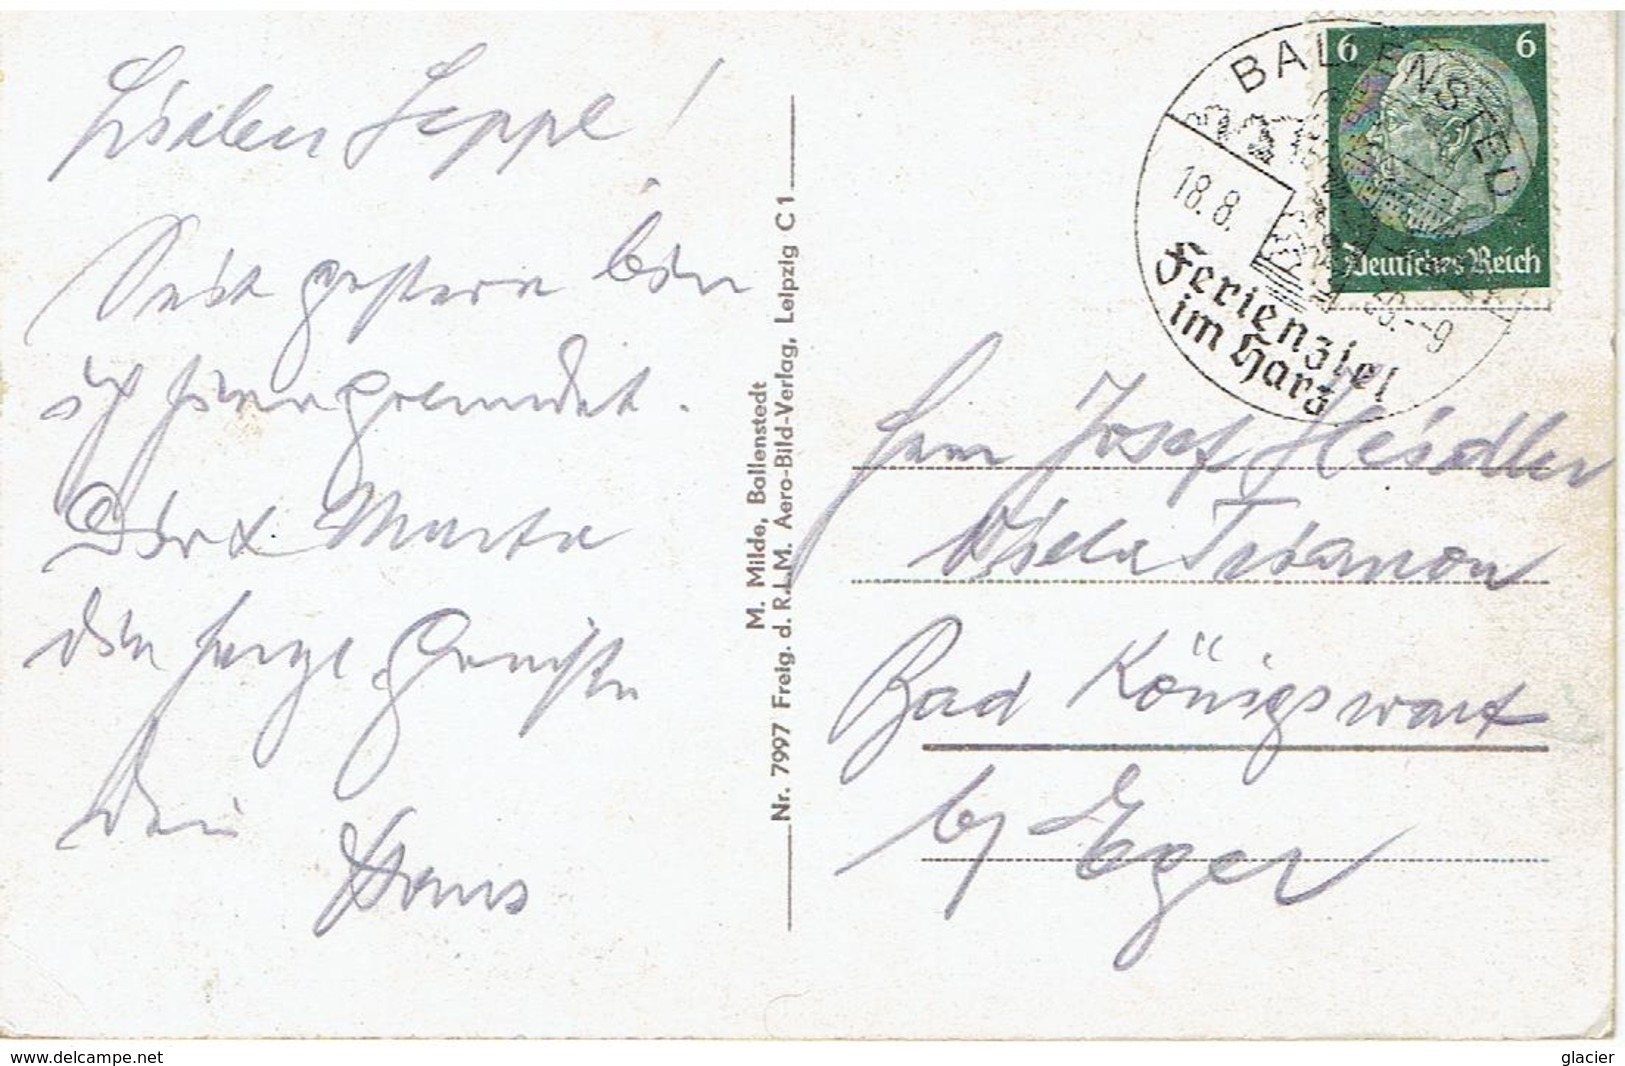 Lieber Seppl!
Seit gestern bin
ich hier
Dir u.
die herzl. Grüße
Dein
Hans
M. Milde, Ballenstedt
Nr. 7997 Freig. d. R.L.M. Aero-Bild-Verlag, Leipzig C1
BALLENSTEDT
18.8.
-9
Ferienziel
im Harz
6 6
Deutsches Reich
Herrn Josef Heidler
Trianon
Bad Königswart
by Eger
www.delcampe.net
glacier